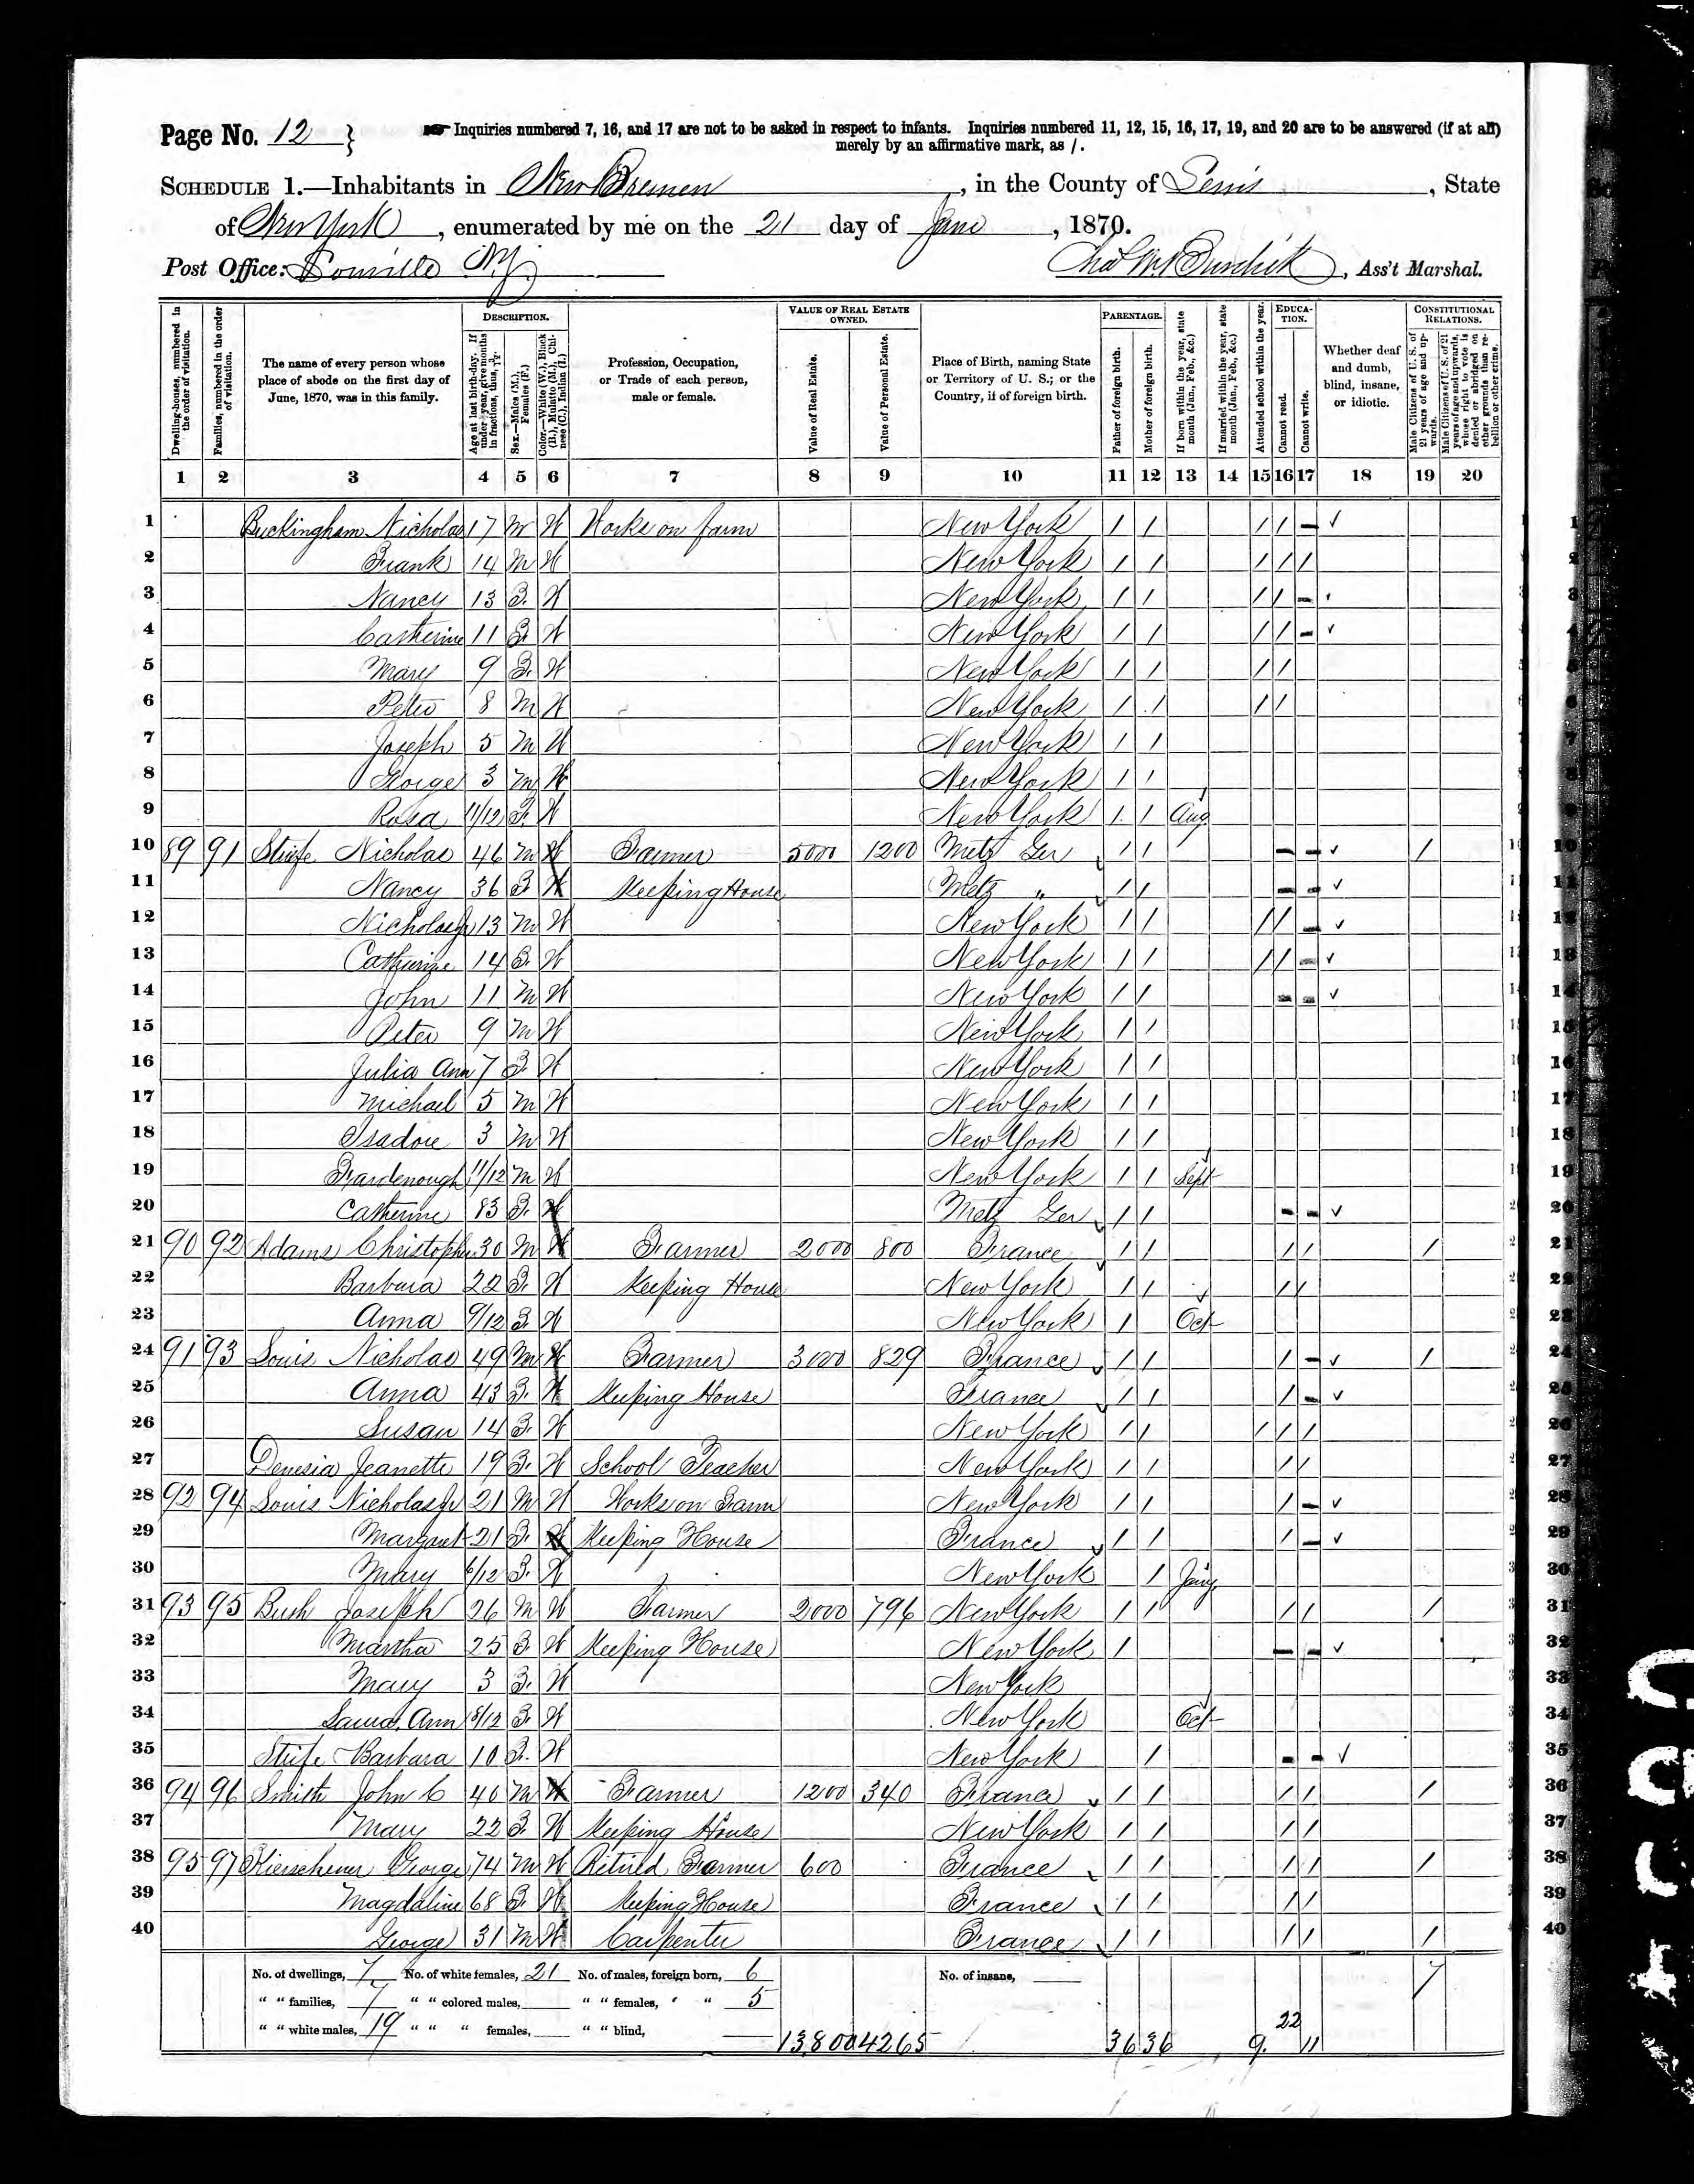 Page No. 12 } ☞ Inquiries numbered 7, 16, and 17 are not to be asked in respect to infants. Inquiries numbered 11, 12, 15, 16, 17, 19, and 20 are to be answered (if at all)
merely by an affirmative mark, as /.
SCHEDULE 1.—Inhabitants in New Bremen, in the County of Lewis, State
of New York, enumerated by me on the 21 day of June, 1870.
Post Office: Lowville N.Y. Chas M Burdick, Ass't Marshal.
Dwelling-houses, numbered in the order of visitation.
Families, numbered in the order of visitation.
The name of every person whose place of abode on the first day of June, 1870, was in this family.
DESCRIPTION.
Age at last birth-day. If under 1 year, give months in fractions, thus, 3/12.
Sex.—Males (M.), Females (F.)
Color.—White (W.), Black (B.), Mulatto (M.), Chinese (C.), Indian (I.)
Profession, Occupation, or Trade of each person, male or female.
VALUE OF REAL ESTATE OWNED.
Value of Real Estate.
Value of Personal Estate.
Place of Birth, naming State or Territory of U. S.; or the Country, if of foreign birth.
PARENTAGE.
Father of foreign birth.
Mother of foreign birth.
If born within the year, state month (Jan., Feb., &c.)
If married within the year, state month (Jan., Feb., &c.)
Attended school within the year.
EDUCATION.
Cannot read.
Cannot write.
Whether deaf and dumb, blind, insane, or idiotic.
CONSTITUTIONAL RELATIONS.
Male Citizens of U. S. of 21 years of age and upwards.
Male Citizens of U. S. of 21 years of age and upwards, whose right to vote is denied or abridged on other grounds than rebellion or other crime.
1 2 3 4 5 6 7 8 9 10 11 12 13 14 15 16 17 18 19 20
1 Buckingham Nicholas 17 M W Works on farm New York / / / / - ✓
2 Frank 14 M W New York / / / / /
3 Nancy 13 F. W New York / / / / -
4 Catherine 11 F. W New York / / / / - ✓
5 Mary 9 F. W New York / / / /
6 Peter 8 M W New York / / / /
7 Joseph 5 M W New York / /
8 George 3 M W New York / /
9 Rosa 11/12 F. W New York / / Aug
10 89 91 Strife Nicholas 46 M W Farmer 5000 1200 Metz Ger / / - - ✓ /
11 Nancy 36 F. W Keeping House Metz " / / - - ✓
12 Nicholas Jr 13 M W New York / / / / - ✓
13 Catherine 14 F. W New York / / / / - ✓
14 John 11 M W New York / / - - ✓
15 Peter 9 M W New York / /
16 Julia Ann 7 F. W New York / /
17 Michael 5 M W New York / /
18 Isadore 3 M W New York / /
19 Fardenough 11/12 M W New York / / Sept
20 Catherine 83 F. W Metz Ger / / - - ✓
21 90 92 Adams Christopher 30 M W Farmer 2000 800 France / / / / /
22 Barbara 22 F. W Keeping House New York / / / /
23 Anna 9/12 F. W New York / Oct
24 91 93 Louis Nicholas 49 M W Farmer 3000 829 France / / / - ✓ /
25 Anna 43 F. W Keeping House France / / / - ✓
26 Susan 14 F. W New York / / / / /
27 Denesia Jeanette 19 F. W School Teacher New York / / / /
28 92 94 Louis Nicholas Jr 21 M W Works on Farm New York / / / - ✓
29 Margaret 21 F. W Keeping House France / / / - ✓
30 Mary 6/12 F. W New York / Jany
31 93 95 Bush Joseph 26 M W Farmer 2000 796 New York / / / / /
32 Martha 25 F. W Keeping House New York / - - ✓
33 Mary 3 F. W New York
34 Laura Ann 8/12 F. W New York Oct
35 Strife Barbara 10 F. W New York / - - ✓
36 94 96 Smith John C 40 M W Farmer 1200 340 France / / / / /
37 Mary 22 F. W Keeping House New York / / / /
38 95 97 Kierschener George 74 M W Retired Farmer 600 France / / / / /
39 Magdaline 68 F. W Keeping House France / / / /
40 George 31 M W Carpenter France / / / / /
No. of dwellings, 7 No. of white females, 21 No. of males, foreign born, 6 No. of insane, 7
" " families, 7 " " colored males, " " females, " " 5
" " white males, 19 " " " females, " " blind, 13,800 4265 36 36 9. 22 11